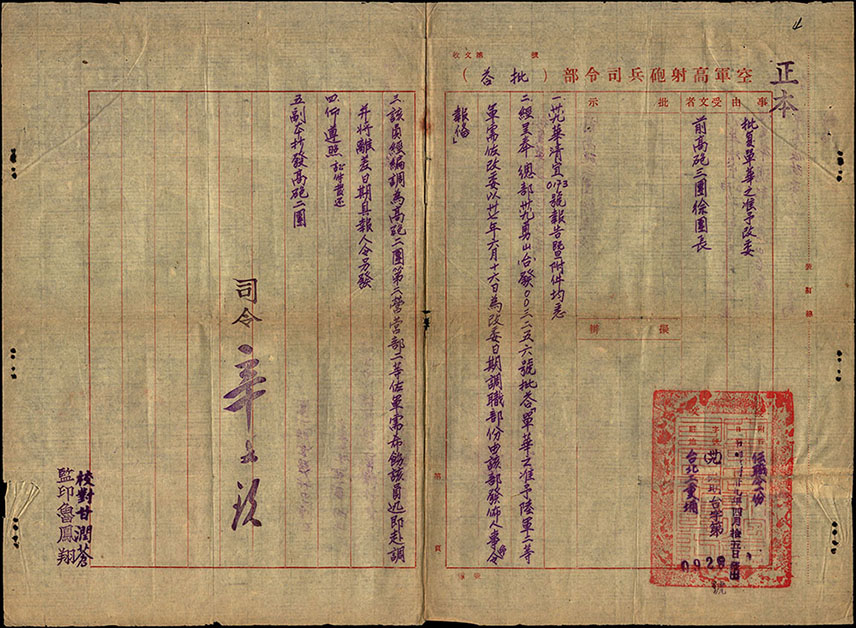 正本
空軍高射砲兵司令部（批荅）
收文 號
事由
受文者
批示
擬辦
批复單華之准予改委
前高砲三團徐團長
任職令一份
四月拾五日
台北三重埔
台字第
0928號
一、華清宜0173號報告暨附件均悉
二、經呈奉 總部卅九勇山台發〇〇三二五六號批荅「單華之准予陸軍二等
軍需佐改委以卅七年六月十六日為改委日期調職部份由該部發佈人事令
報偹」
三、該員經編調為高砲二團第三營營部二等佐軍需希飭該員迅即赴調
并將離差日期具報人令另發
四、仰遵照 証件發还
五、副本抄發高砲二團
司令 辛
校對甘潤蒼
監印魯鳳翔